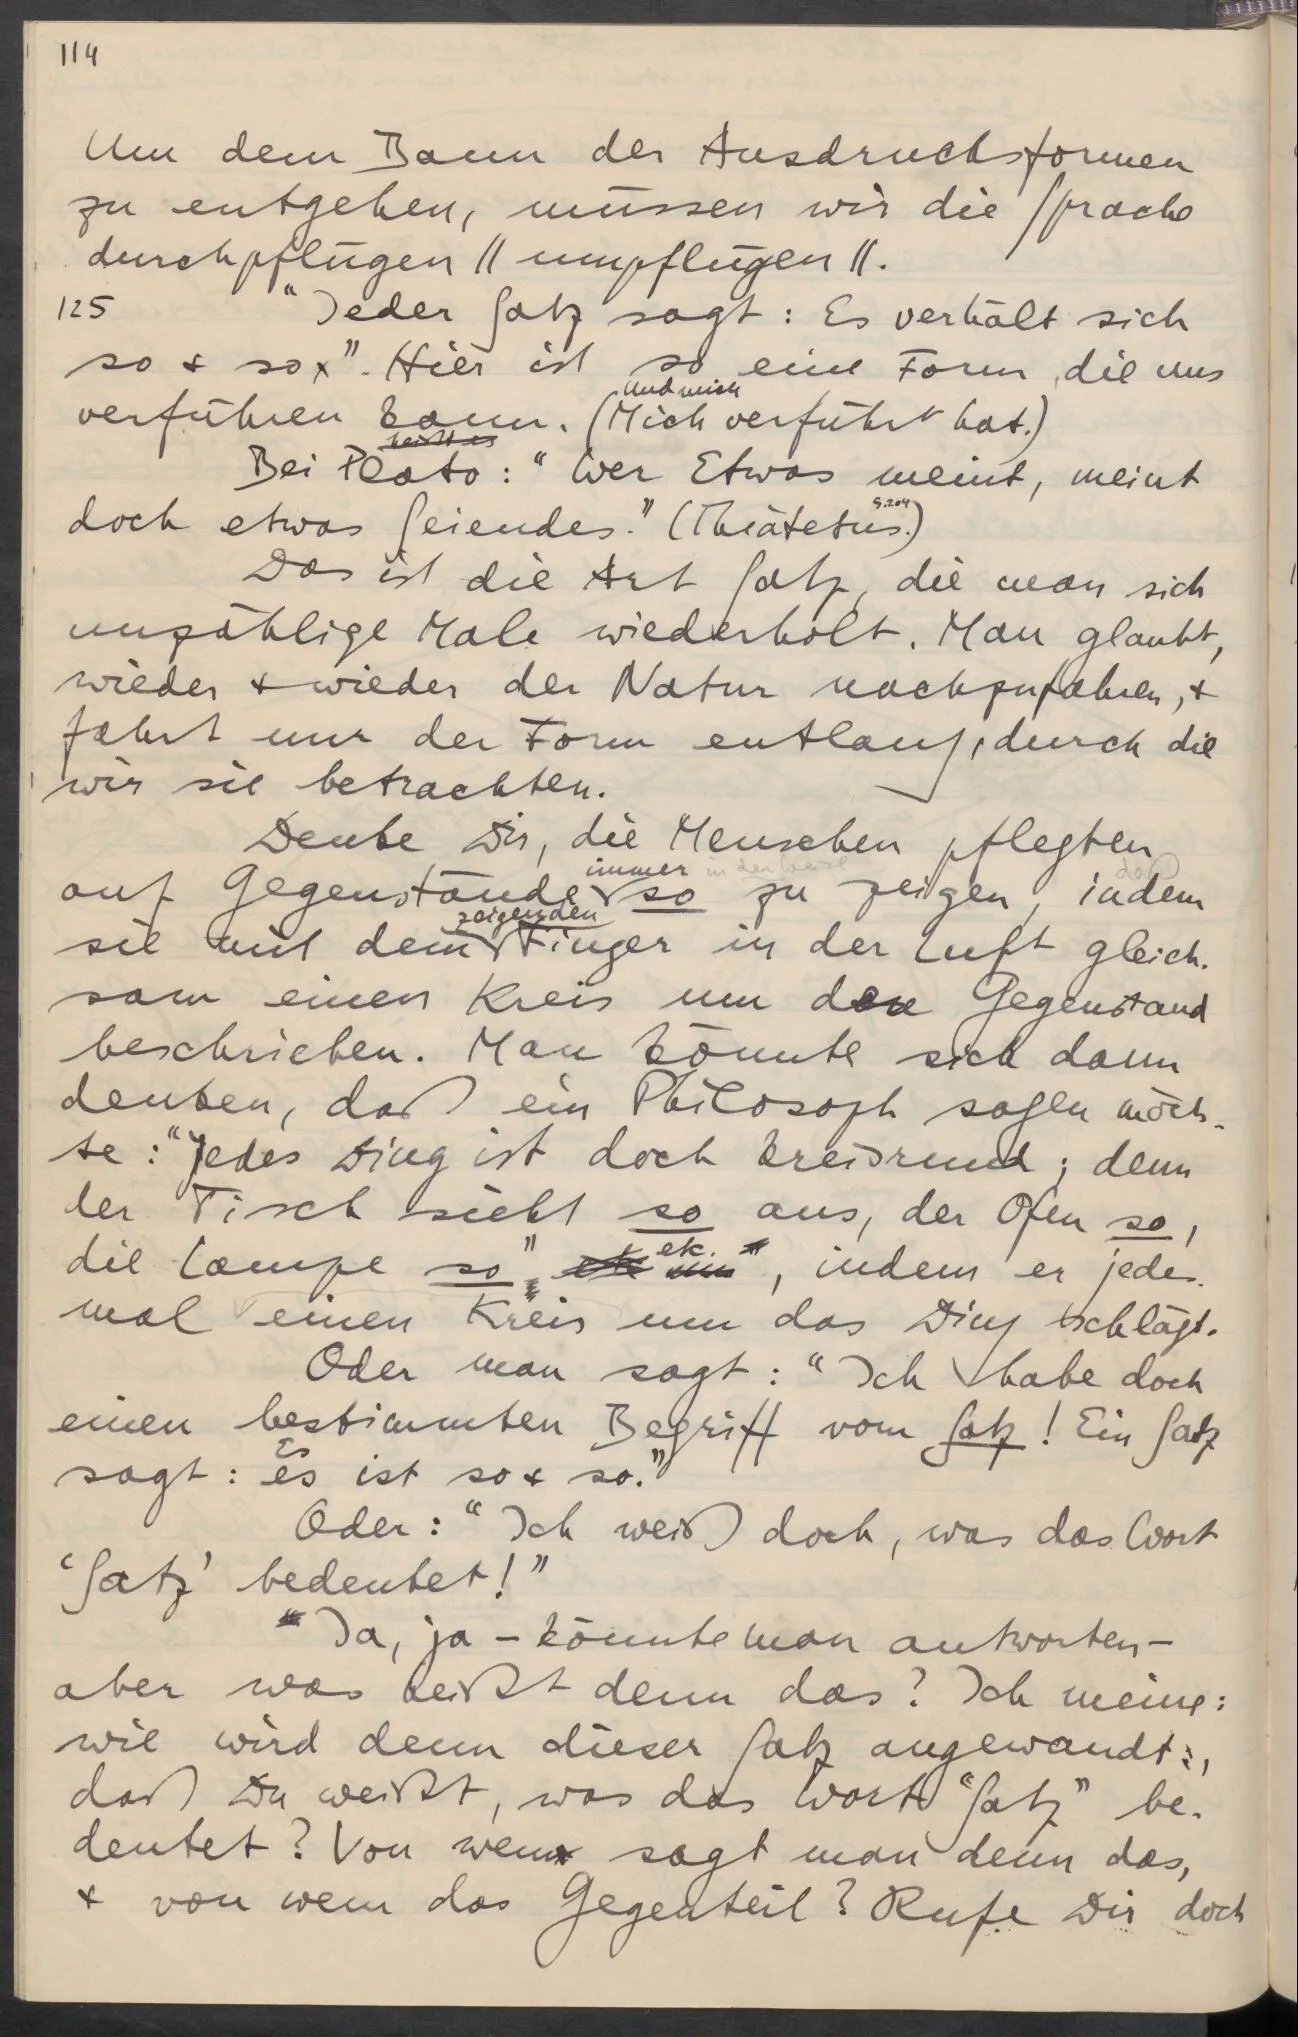 114
Um dem Bann der Ausdrucksformen
zu entgehen, müssen wir die Sprache
durchpflügen || umpflügen ||.
125 “Jeder Satz sagt: Es verhält sich
so & so”. Hier ist so eine Form, die uns
und mich
verführen kann. (Mich verführt hat.)
heißt es
Bei Plato: “Wer Etwas meint, meint
S.204
doch etwas Seiendes.” (Theätetus.)
Das ist die Art Satz, die man sich
unzählige Male wiederholt. Man glaubt,
wieder & wieder der Natur nachzufahren, &
fährt nur der Form entlang, durch die
wir sie betrachten.
Denke Dir, die Menschen pflegten
immer in der Weise daß
auf Gegenstände so zu zeigen, indem
zeigenden
sie mit dem Finger in der Luft gleich-
sam einen Kreis um den Gegenstand
beschrieben. Man könnte sich dann
denken, daß ein Philosoph sagen möch-
te: “Jedes Ding ist doch kreisrund; denn
der Tisch sieht so aus, der Ofen so,
etc.
die Lampe so”, indem er jedes-
mal einen Kreis um das Ding schlägt.
Oder man sagt: “Ich habe doch
einen bestimmten Begriff vom Satz! Ein Satz
Es
sagt: es ist so & so.”
Oder: “Ich weiß doch, was das Wort
‘Satz’ bedeutet!”
Ja, ja – könnte man antworten –
aber was heißt denn das? Ich meine:
wie wird denn dieser Satz angewandt:,
daß Du weißt, was das Wort “Satz” be-
deutet? Von wem sagt man denn das,
& von wem das Gegenteil? Rufe Dir doch